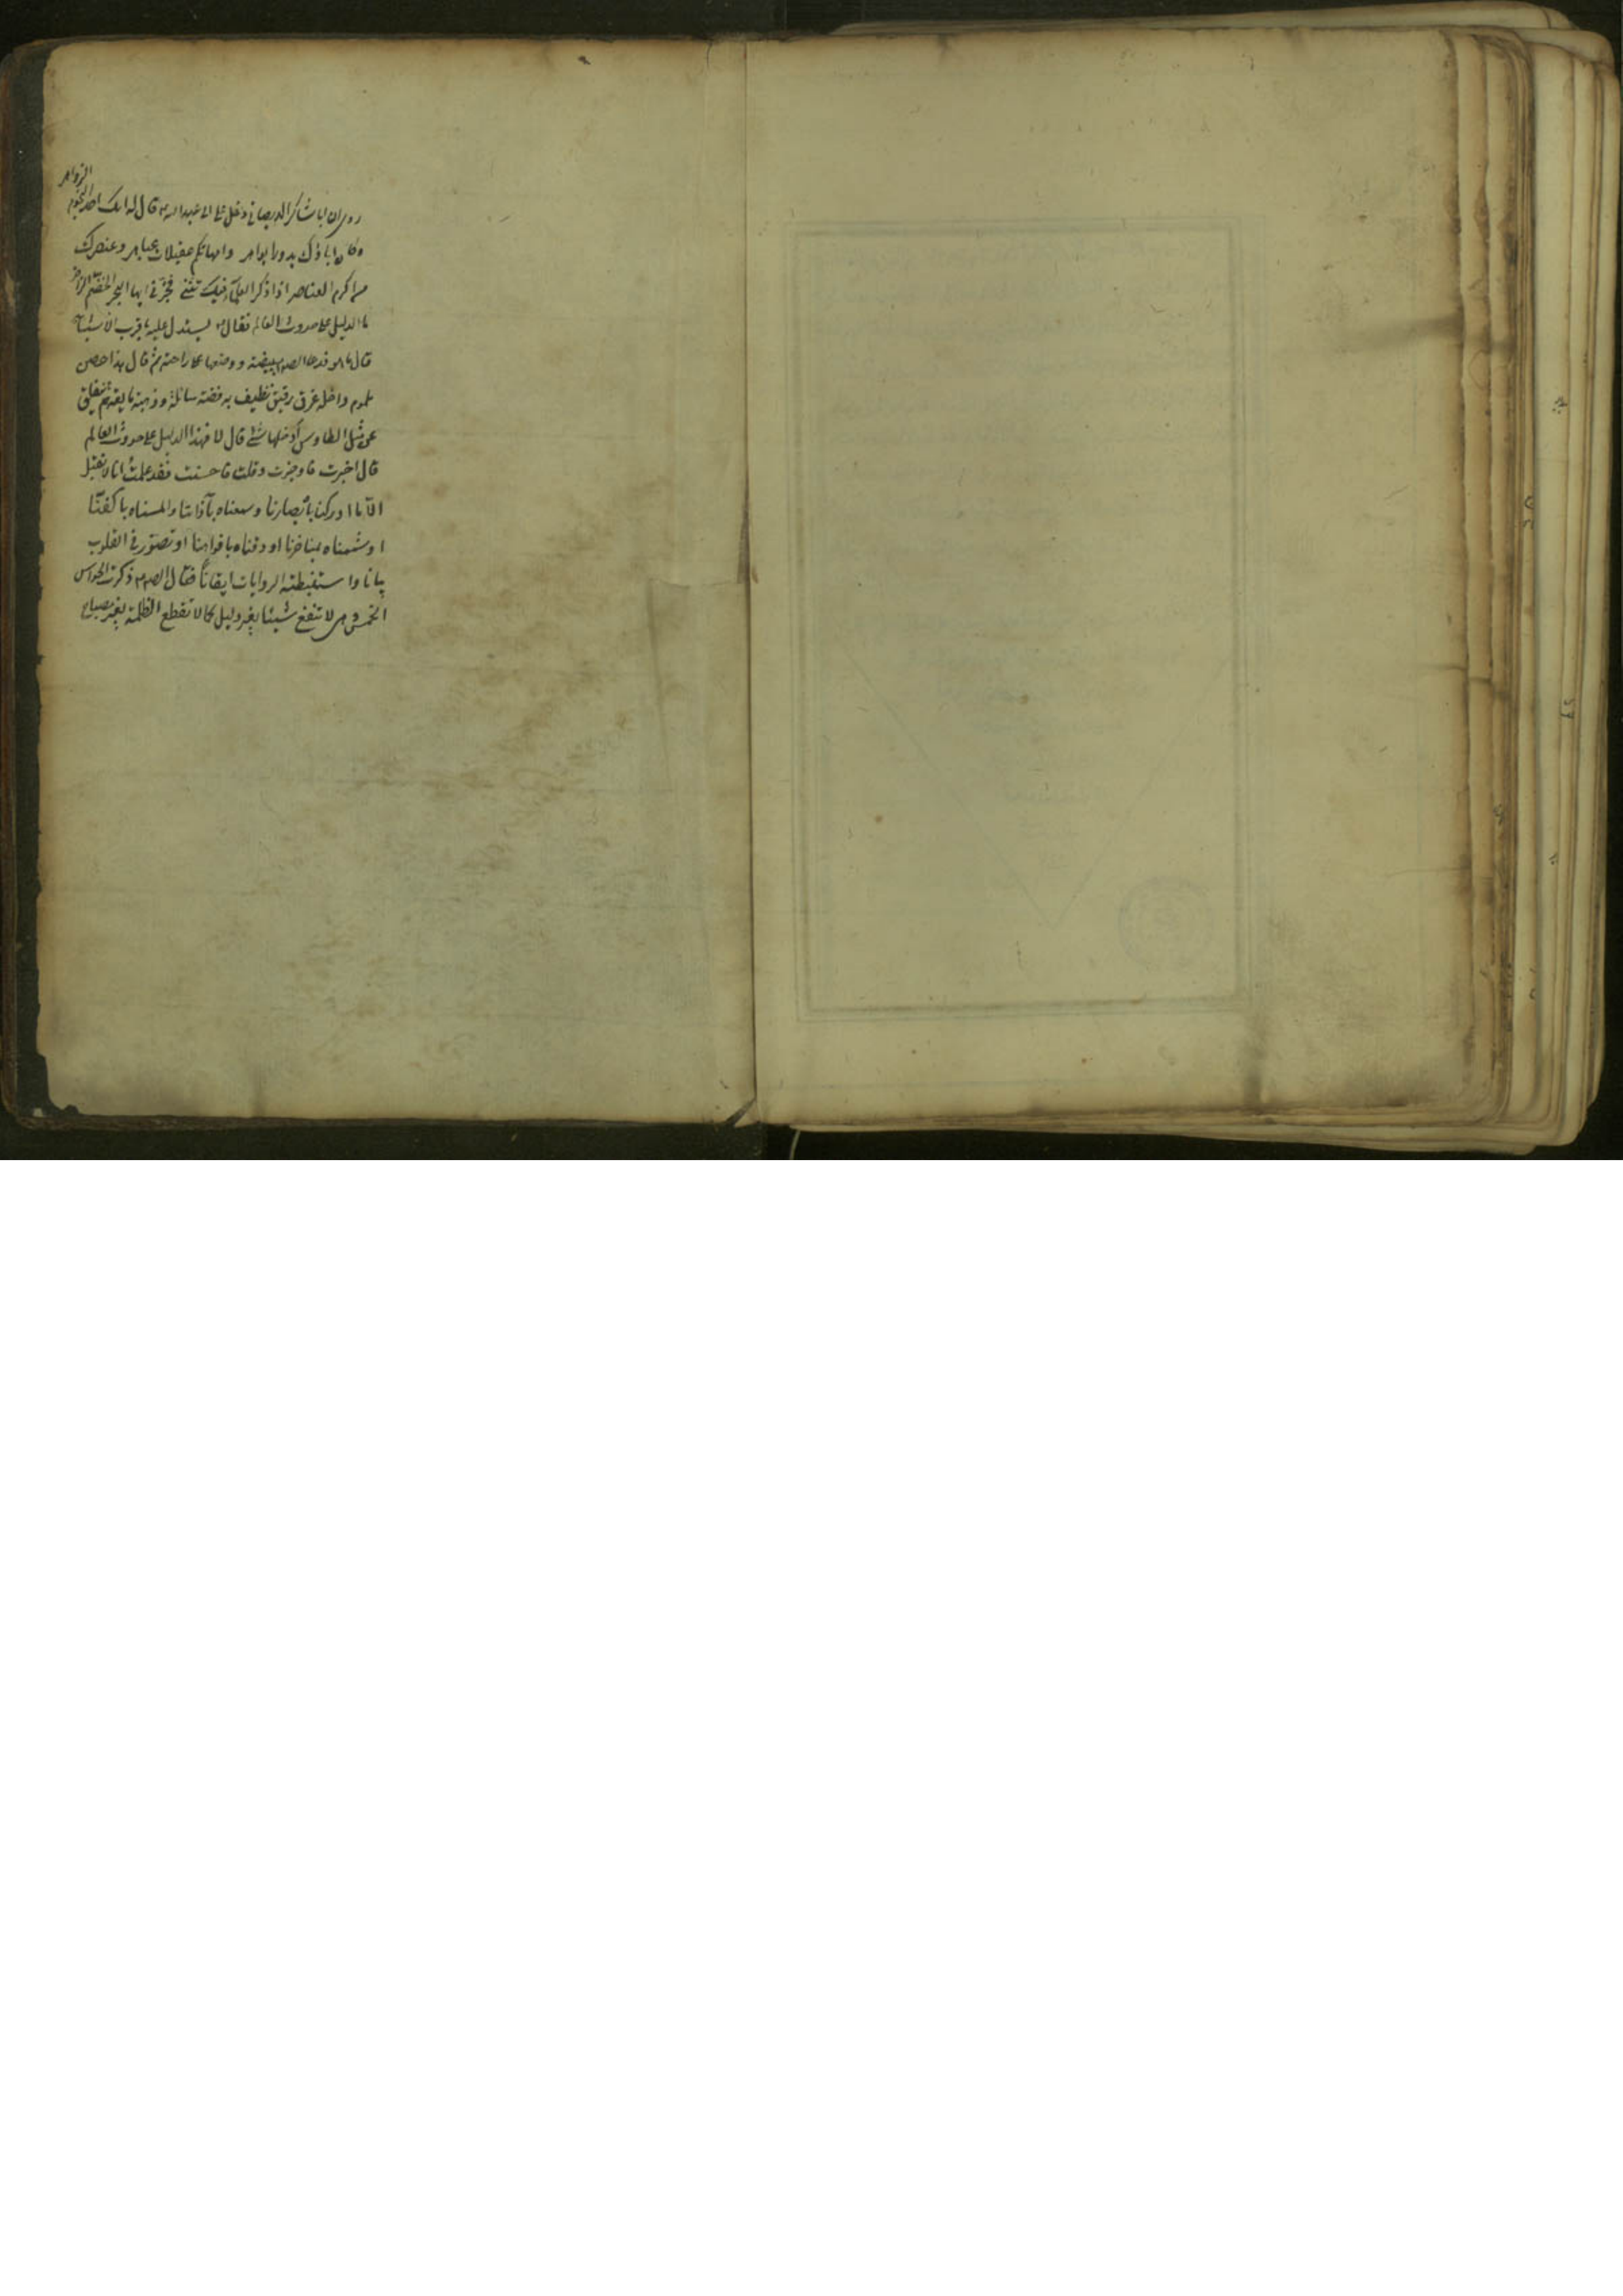 الزواهر
روى ان ابا شاكر الديصاني دخل على ابى عبد الله ع قال له انك احد النجوم
وكان اباؤك بدورا بواهر وامهاتكم عقيلات عباهر وعنصرك
من اكرم العناصر اذا ذكر العلماء فبك تثنى فخبرنى ايها البحر الخضم الزاخر
ما الدليل على حدوث العالم فقال ع يستدل عليه باقرب الاشياء
قال ما هو فدعا الصـ ع ببيضة ووضعها على راحته ثم قال هذا حصن
ملموم داخله غرقئ رقيق تطيف به فضة سائلة وذهبة مايعة ثم تنفلق
عن مثل الطاوس أدخلها شئ قال لا فهذا الدليل على حدوث العالم
قال اخبرت فاوجزت وقلت فاحسنت فقد علمت انا لا نقبل
الا ما ادركنا بأبصارنا وسمعناه بآذاننا والمسناه باكفنا
او شممناه بمناخرنا او ذقناه بافواهنا او تصور فى القلوب
بيانا واستنبطته الروايات ايقاناً فقال الصـ ع ذكرت الحواس
الخمس وهى لا تنفع شيئا بغير دليل كما لا تقطع الظلمة بغير مصباح